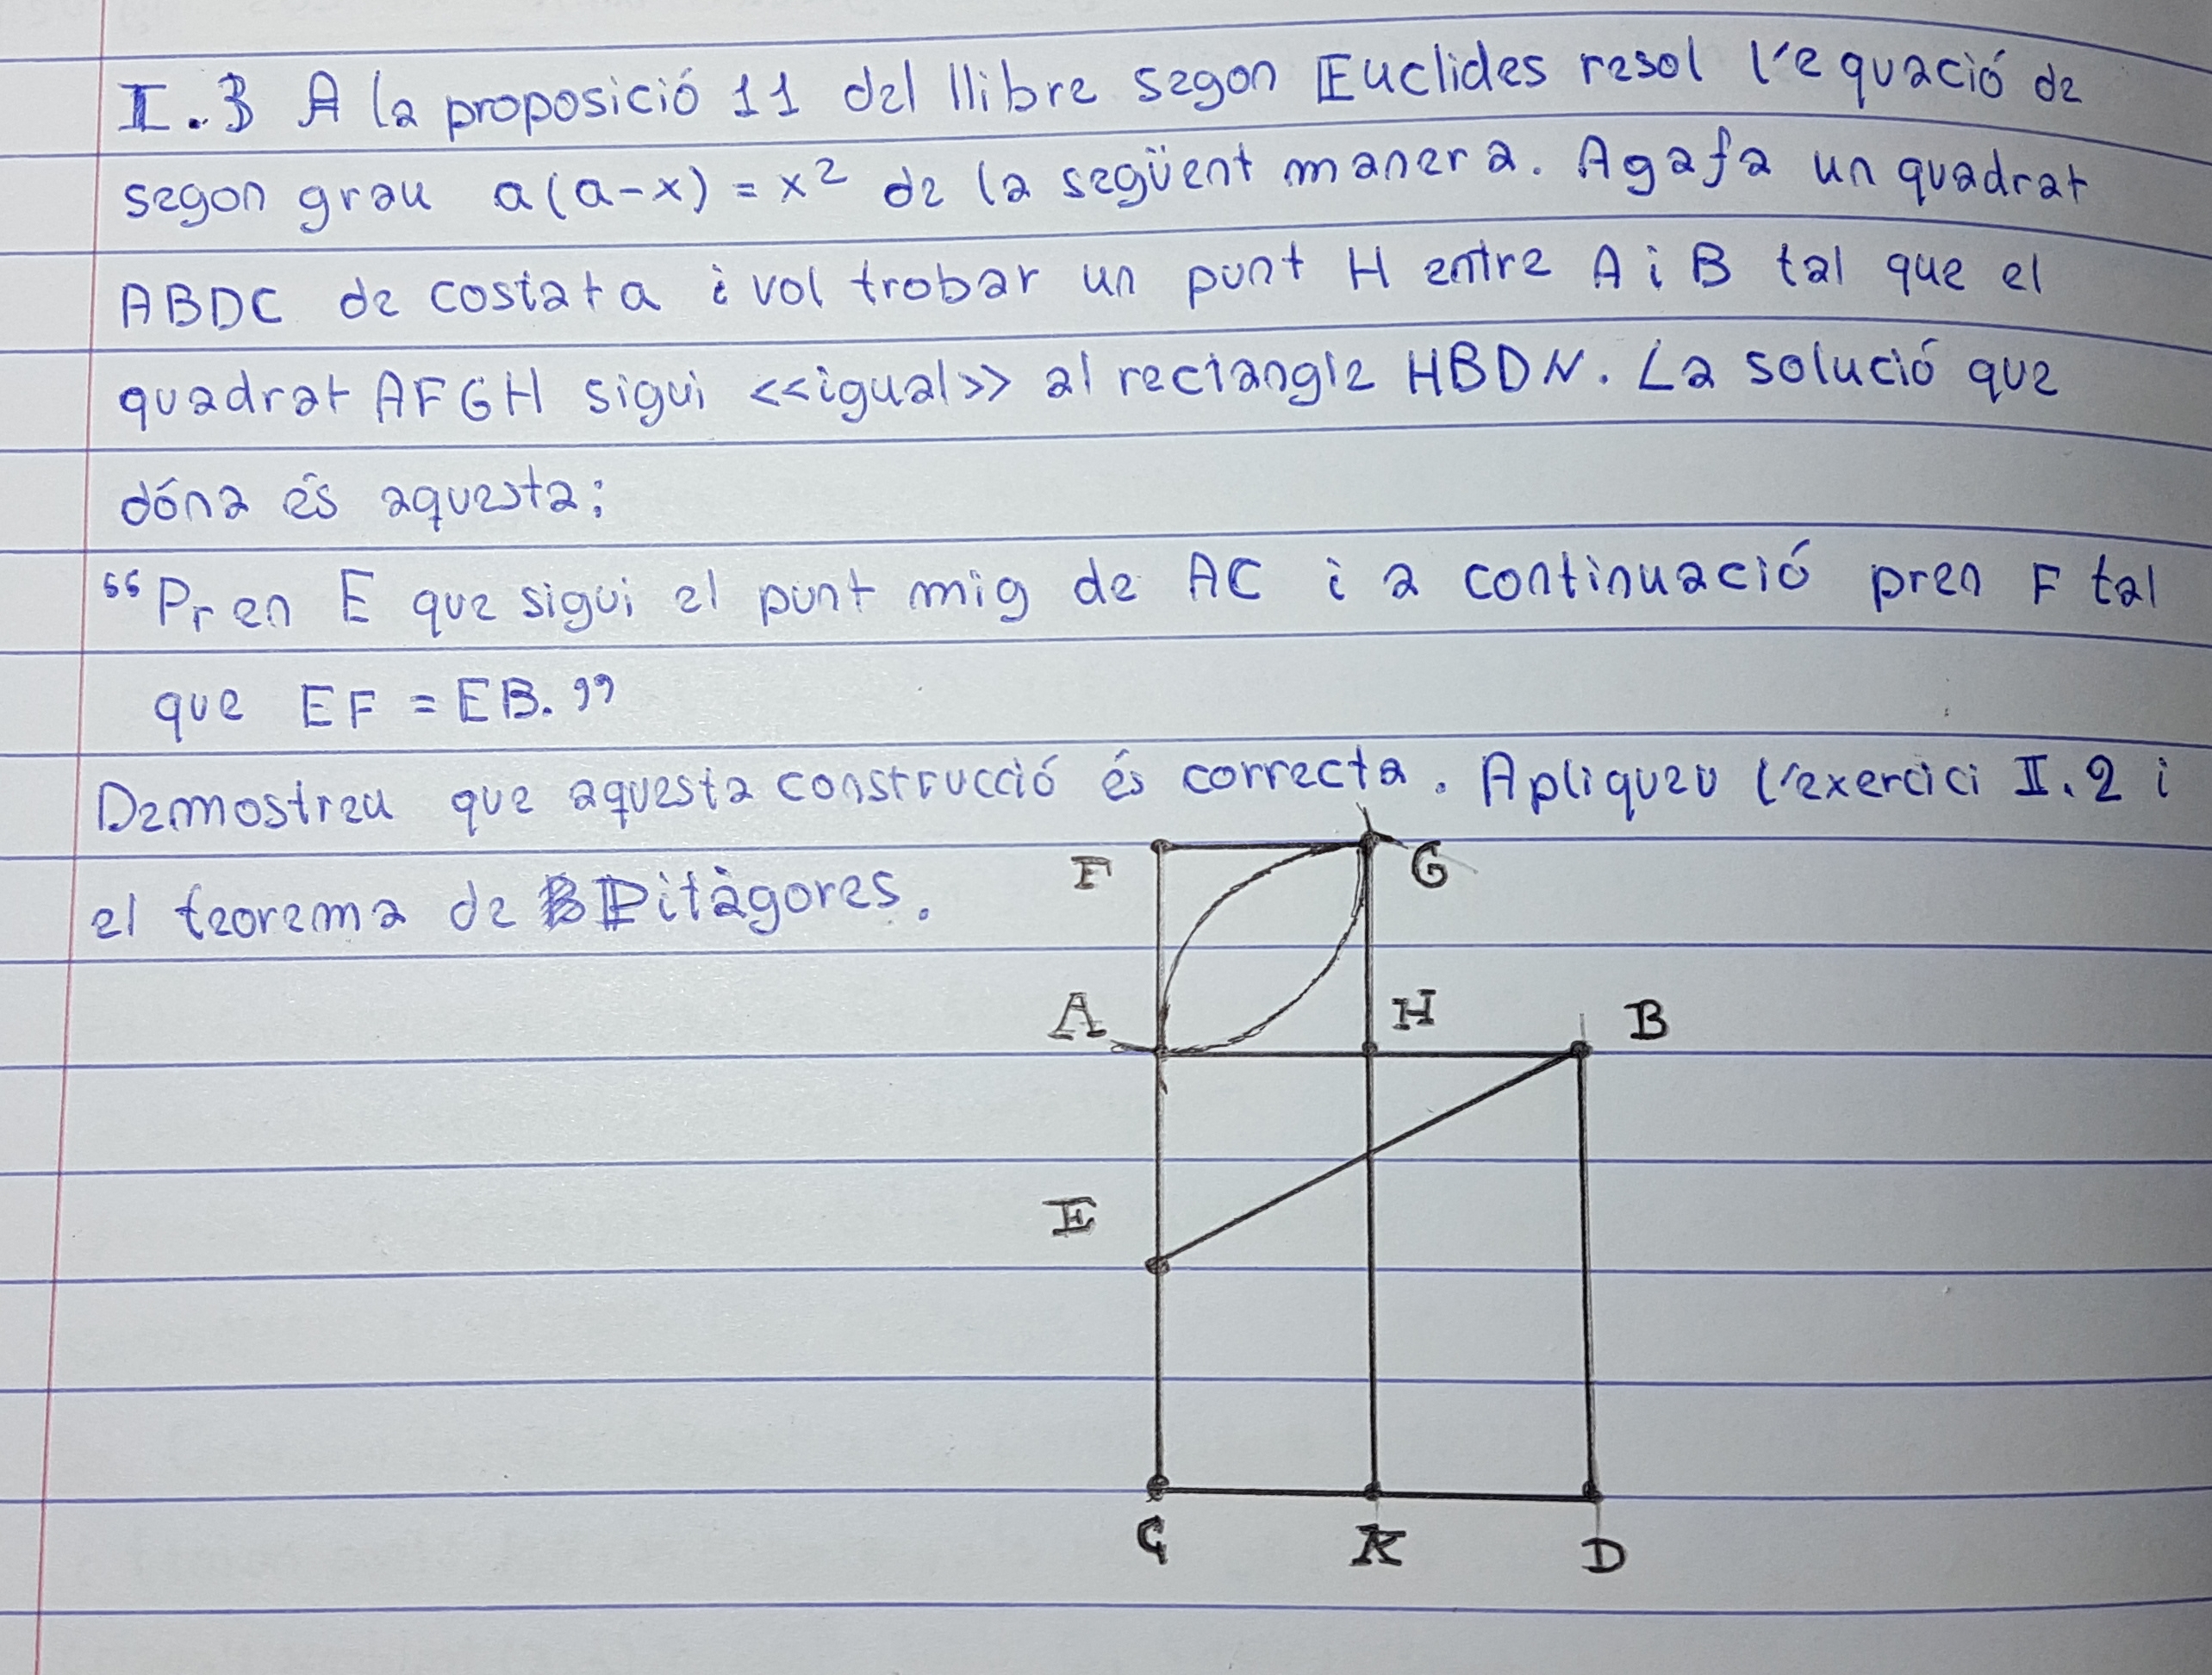 I.3 A la proposició 11 del llibre segon Euclides resol l'equació de
segon grau a(a-x) = x² de la següent manera. Agafa un quadrat
ABDC de costat a i vol trobar un punt H entre A i B tal que el
quadrat AFGH sigui <<igual>> al rectangle HBDN. La solució que
dóna és aquesta:
“Pren E que sigui el punt mig de AC i a continuació pren F tal
que EF = EB.”
Demostreu que aquesta construcció és correcta. Apliqueu l'exercici II.2 i
el teorema de Pitàgores.
F G
A H B
E
C K D